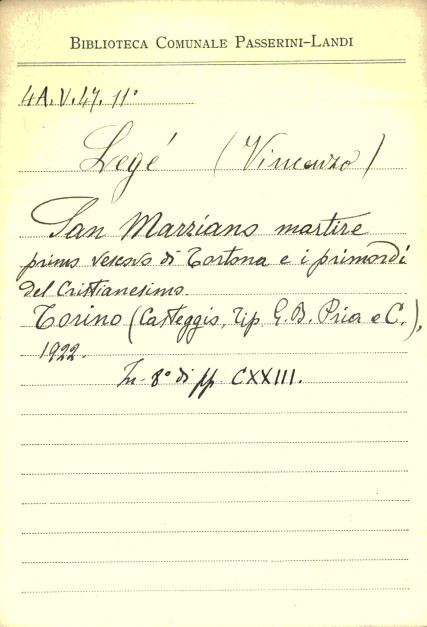 BIBLIOTECA COMUNALE PASSERINI-LANDI
4A.V.47.11°
Legé (Vincenzo)
San Marziano martire
primo vescovo di Tortona e i primordi
del Cristianesimo.
Torino (Casteggio, Tip. G. B. Pria e C.),
1922.
In-8° di pp. CXXIII.